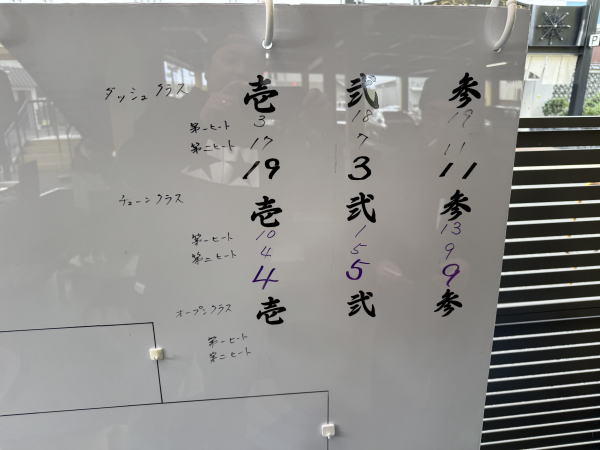 ダッシュクラス 壱 弐 参
第一ヒート 3 18 19
第二ヒート 17 7 11
19 3 11
チューンクラス 壱 弐 参
第一ヒート 10 1 13
第二ヒート 4 5 9
4 5 9
オープンクラス 壱 弐 参
第一ヒート
第二ヒート
P